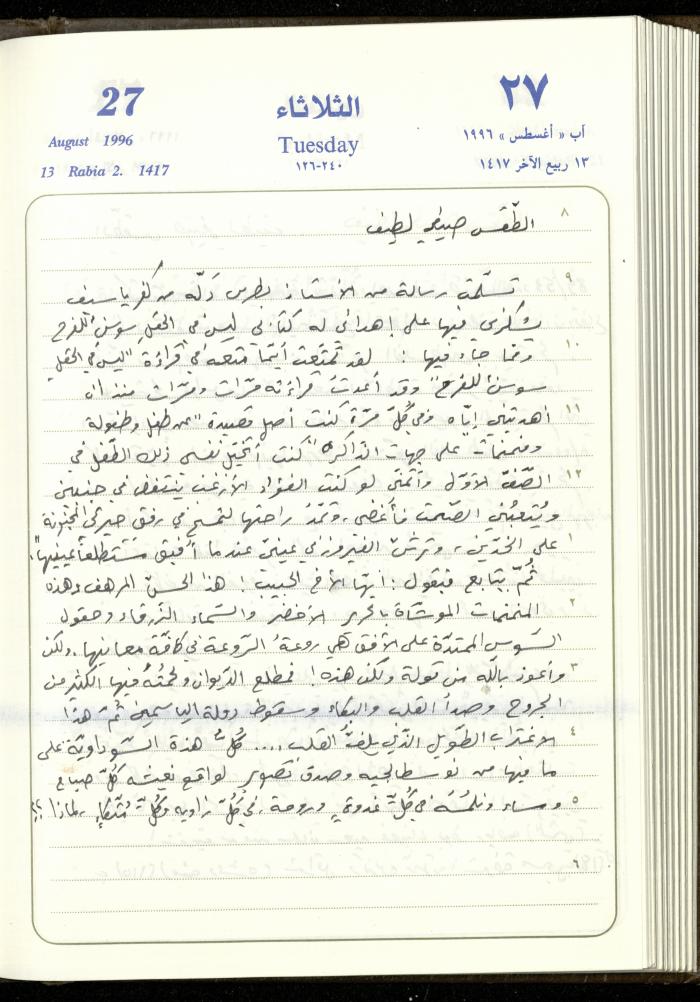 27
August 1996
13 Rabia 2. 1417
الثلاثاء
Tuesday
١٢٦-٢٤٠
٢٧
آب « أغسطس » ١٩٩٦
١٣ ربيع الآخر ١٤١٧
٨ الطّقس صيفي لطيف
٩ تسلّمت رسالة من الأستاذ بطرس دلّه من كفر ياسيف
يشكرني فيها على إهدائي له كتابي ليس في الحقل سوسنٌ للفرح
١٠ وممّا جاء فيها : لقد تمتّعت أيّما متعه في قراءة "ليس في الحقل
سوسنٌ للفرح" وقد أعدتُ قراءته مرّات ومرّات منذ ان
١١ أهديتني إيّاه وفي كلّ مرّة كنت أصل قصيدة "عن طفل وطفولة
ومنمنمات على جهات الذاكره" كنت أتخيّل نفسي ذلك الطّفل في
١٢ الصّفّ الأوّل وأتمنّى لو كنت الفؤاد الأزغب ينتفض في جنبين
ويُتعبُني الصّمت فأغضي، وتمدّ راحتها لتمسح في رفق حيرتي المجنونة
١ على الخدّين، وترشّ الفيروز في عينيّ عندما أفيق مستطلعاً عينيها".
ثمّ يتابع فيقول : أيّها الأخ الحبيب ! هذا الحسّ المرهف وهذه
٢ المنمنمات الموشّاة بالحرير الأخضر والسّماء الزّرقاء وحقول
السّوسن الممتدّة على الأفق هي روعةُ الرّوعة في كافّة معانيها. ولكن
٣ وأعوذ بالله من قولة ولكن هذه ! فمطلع الدّيوان ولحمتُهُ فيها الكثير من
الجروح وصدأ القلب والبكاء وسقوط دولة الياسمين ثمّ هذا
٤ الاغتراب الطّويل الذي يلفّ القلب .... كُلّ هذه السّوداويّة على
ما فيها من نوسطالجيه وصدق تصوير لواقع نعيشه كلّ صباح
٥ ومساء ونلمسُهُ في كُلّ غدوةٍ وروحة، في كُلّ زاويه وكُلّ مُتّكإٍ، لماذا ؟؟
٦